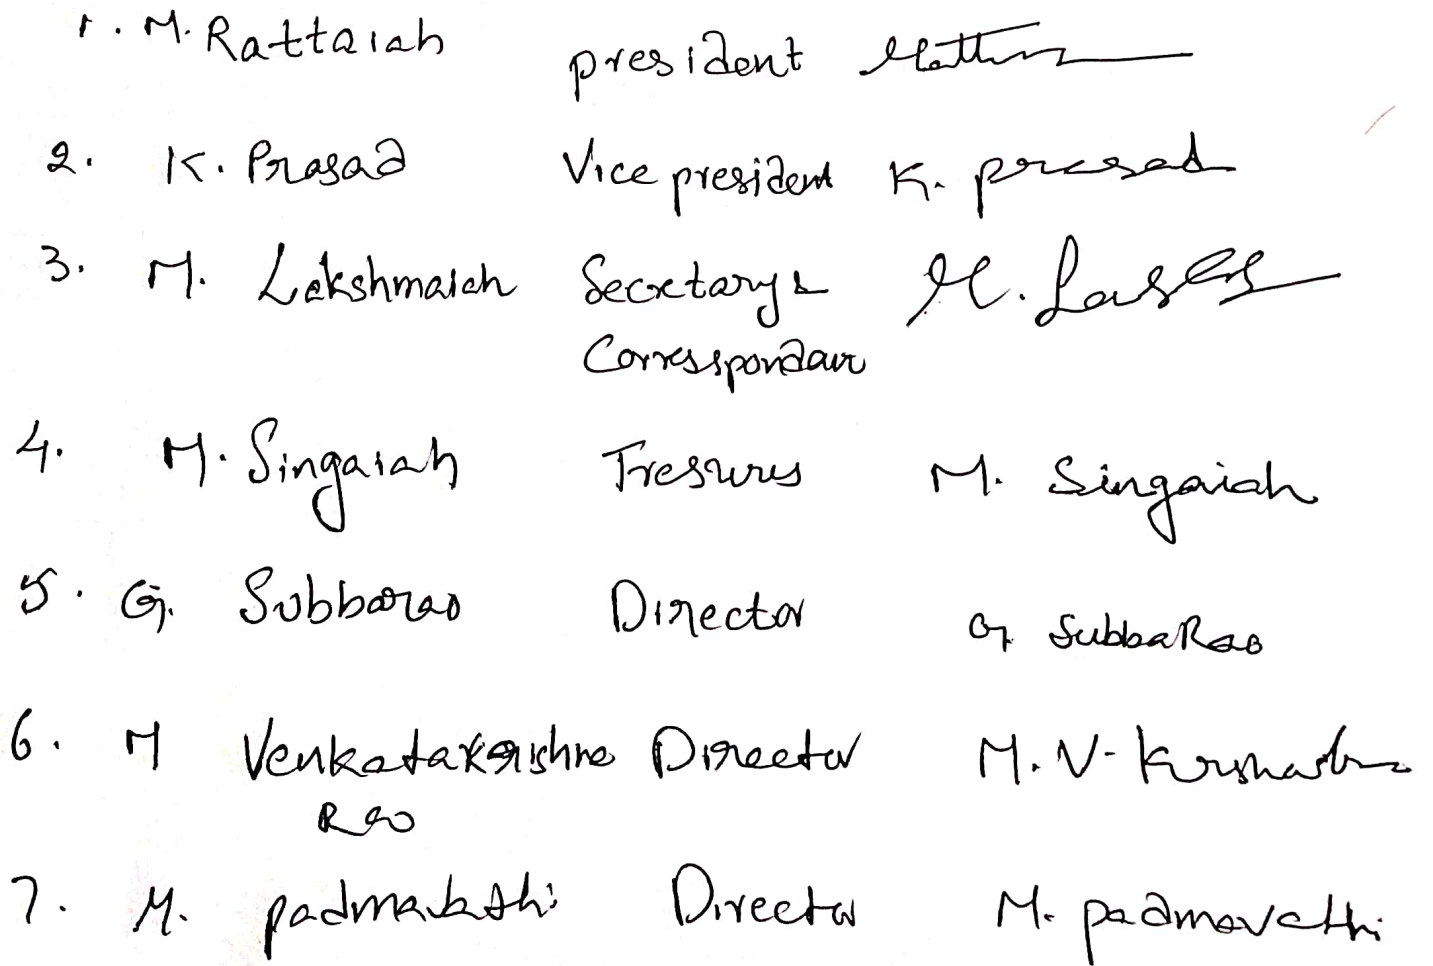 1. M. Rattaiah president
2. K. Prasad Vice president K. prasad
3. M. Lakshmaiah Secretary &
Corresspondant
4. M. Singaiah Tresurer M. Singaiah
5. G. Subbarao Director G SubbaRao
6. M Venkatakrishna Director M. V. Krishna
Rao
7. M. padmavathi Director M. padmavathi